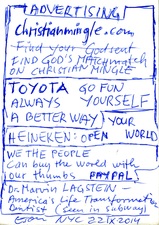 ADVERTISING
christianmingle.com
Find your Godsent
FIND GOD'S MATCH match
ON CHRISTIAN MINGLE
TOYOTA GO FUN
ALWAYS YOURSELF
A BETTER WAY YOUR
HEINEKEN: OPEN WORLD
WE THE PEOPLE
Can buy the world with
our thumbs PAYPAL!
Dr. Marvin LAGSTEIN
America's Life Transformation
Dentist (seen in subway)
NYC 22 IX 2014